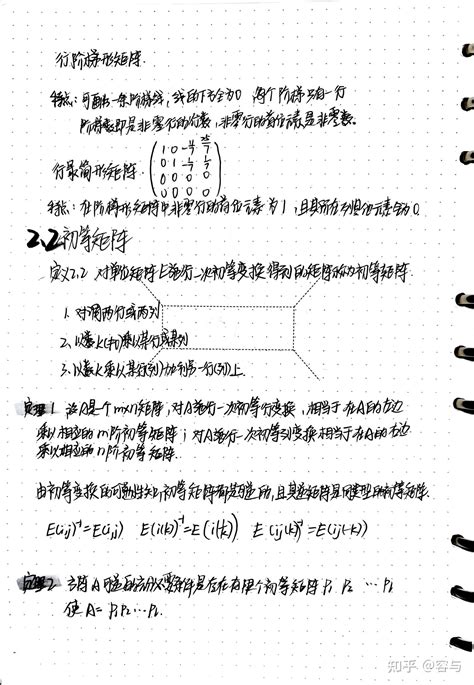 行阶梯形矩阵.
特点:可画出一条阶梯线,线的下方全为0 每个阶梯只有一行
阶梯数即是非零行的行数,非零行的首位元素是非零数.
行最简形矩阵.
1 0
0 1
0 0 0 0
0 0 0 0
特点:在阶梯形矩阵中非零行的首位元素为1,且其所在列其他元素全为0
2.2初等矩阵
定义2.2 对单位矩阵E施行一次初等变换得到的矩阵称为初等矩阵.
1.对调两行或两列
2.以数k(≠0)乘以某行或某列
3.以数k乘以某行(列)加到另一行(列)上.
定理1 设A是一个m×n矩阵,对A施行一次初等行变换,相当于在A的左边
乘以相应的m阶初等矩阵;对A施行一次初等列变换相当于在A的右边
乘以相应的n阶初等矩阵.
由初等变换的可逆性知,初等矩阵都是可逆的,且其逆矩阵是同类型的初等矩阵.
E(i,j)⁻¹=E(i,j) E(i(k))⁻¹=E(i(1/k)) E(ij(k))⁻¹=E(ij(-k))
定理2 方阵A可逆的充分必要条件是存在有限个初等矩阵P₁ P₂ ⋯
使A=P₁P₂⋯
知乎 @容与